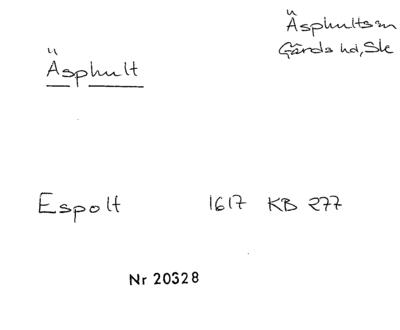 Äsphults sn
Gärds hd, Ske
Äsphult
Espolt 1617 KB 277
Nr 20328